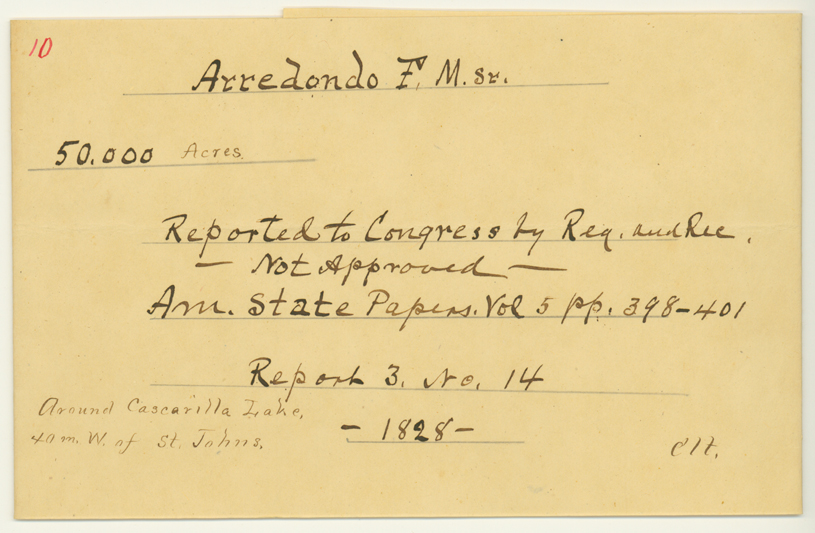 10
Arredondo F. M. Sr.
50.000 Acres.
Reported to Congress by Reg. and Rec.
— Not Approved —
Am. State Papers. Vol 5 pp. 398-401
Report 3. No. 14
Around Cascarilla Lake,
40 m. W. of St. Johns.
- 1828 -